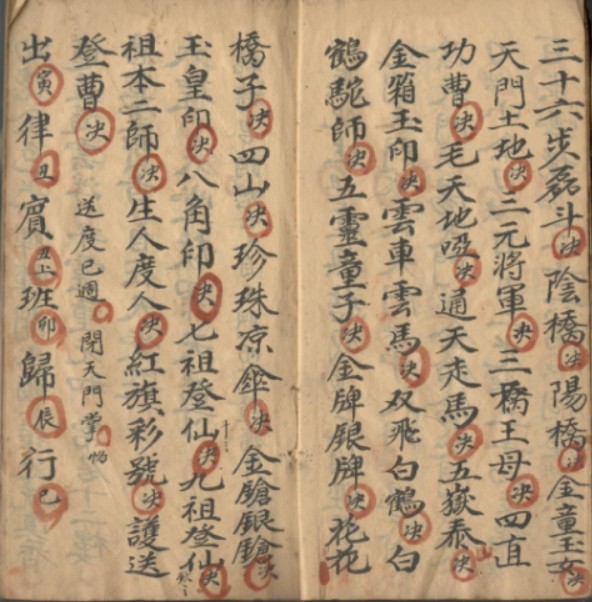 三十六步磊斗决陰橋决陽橋决金童玉女决
天門土地决三元將軍决三橋王母决四直
功曹决毛天地哑决通天走馬决五嶽泰山决
金箱玉印决雲車雲馬决双飛白鶴决白
鶴駝師决五靈童子决金牌銀牌决花花
橋子决四山决珍珠凉傘决金鎗銀鎗决
玉皇印决八角印决七祖登仙决九祖登仙决
祖本二師决生人度人决紅旗彩號决護送
登曹决 送度已週 閉天門掌
出寅律丑賓丑上班卯歸辰行巳